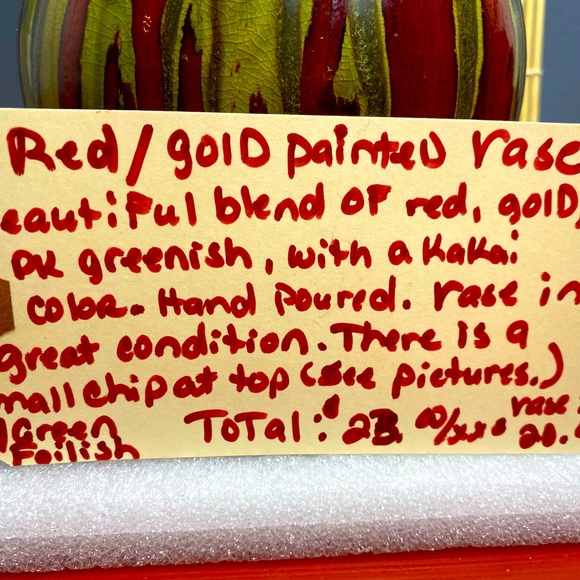 Red/gOlD painteD vase
eautiful blend of red, golD,
DK greenish, with a KaKai
color. Hand Poured. vase in
great condition. There is a
mall chip at top (see pictures.)
Green Foilish
Total: 23. 00/xxx
vase: 20.